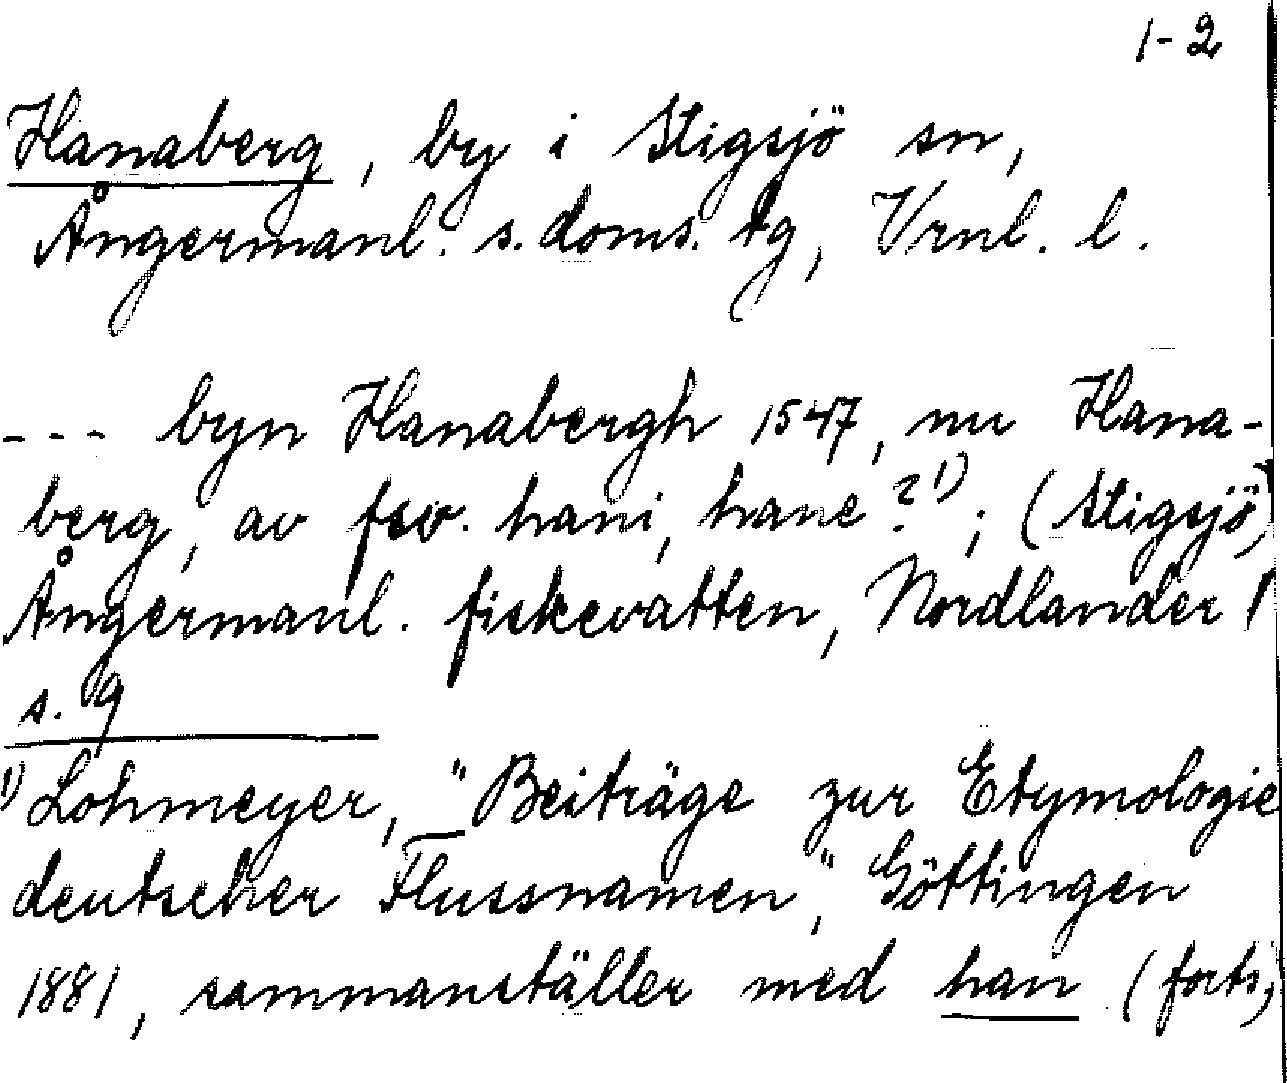 1-2
Hanaberg, by i Stigsjö sn,
Ångermanl. s. doms. tg, Vrnl. l.
--- byn Hanabergh 1547, nu Hana-
berg, av fsv. hani, hane?¹⁾; (Stigsjö,
Ångermanl. fiskevatten, Nordlander
s. 9
¹⁾ Lohmeyer, "Beiträge zur Etymologie
deutscher Flussnamen", Göttingen
1881, sammanställer med han (forts.)